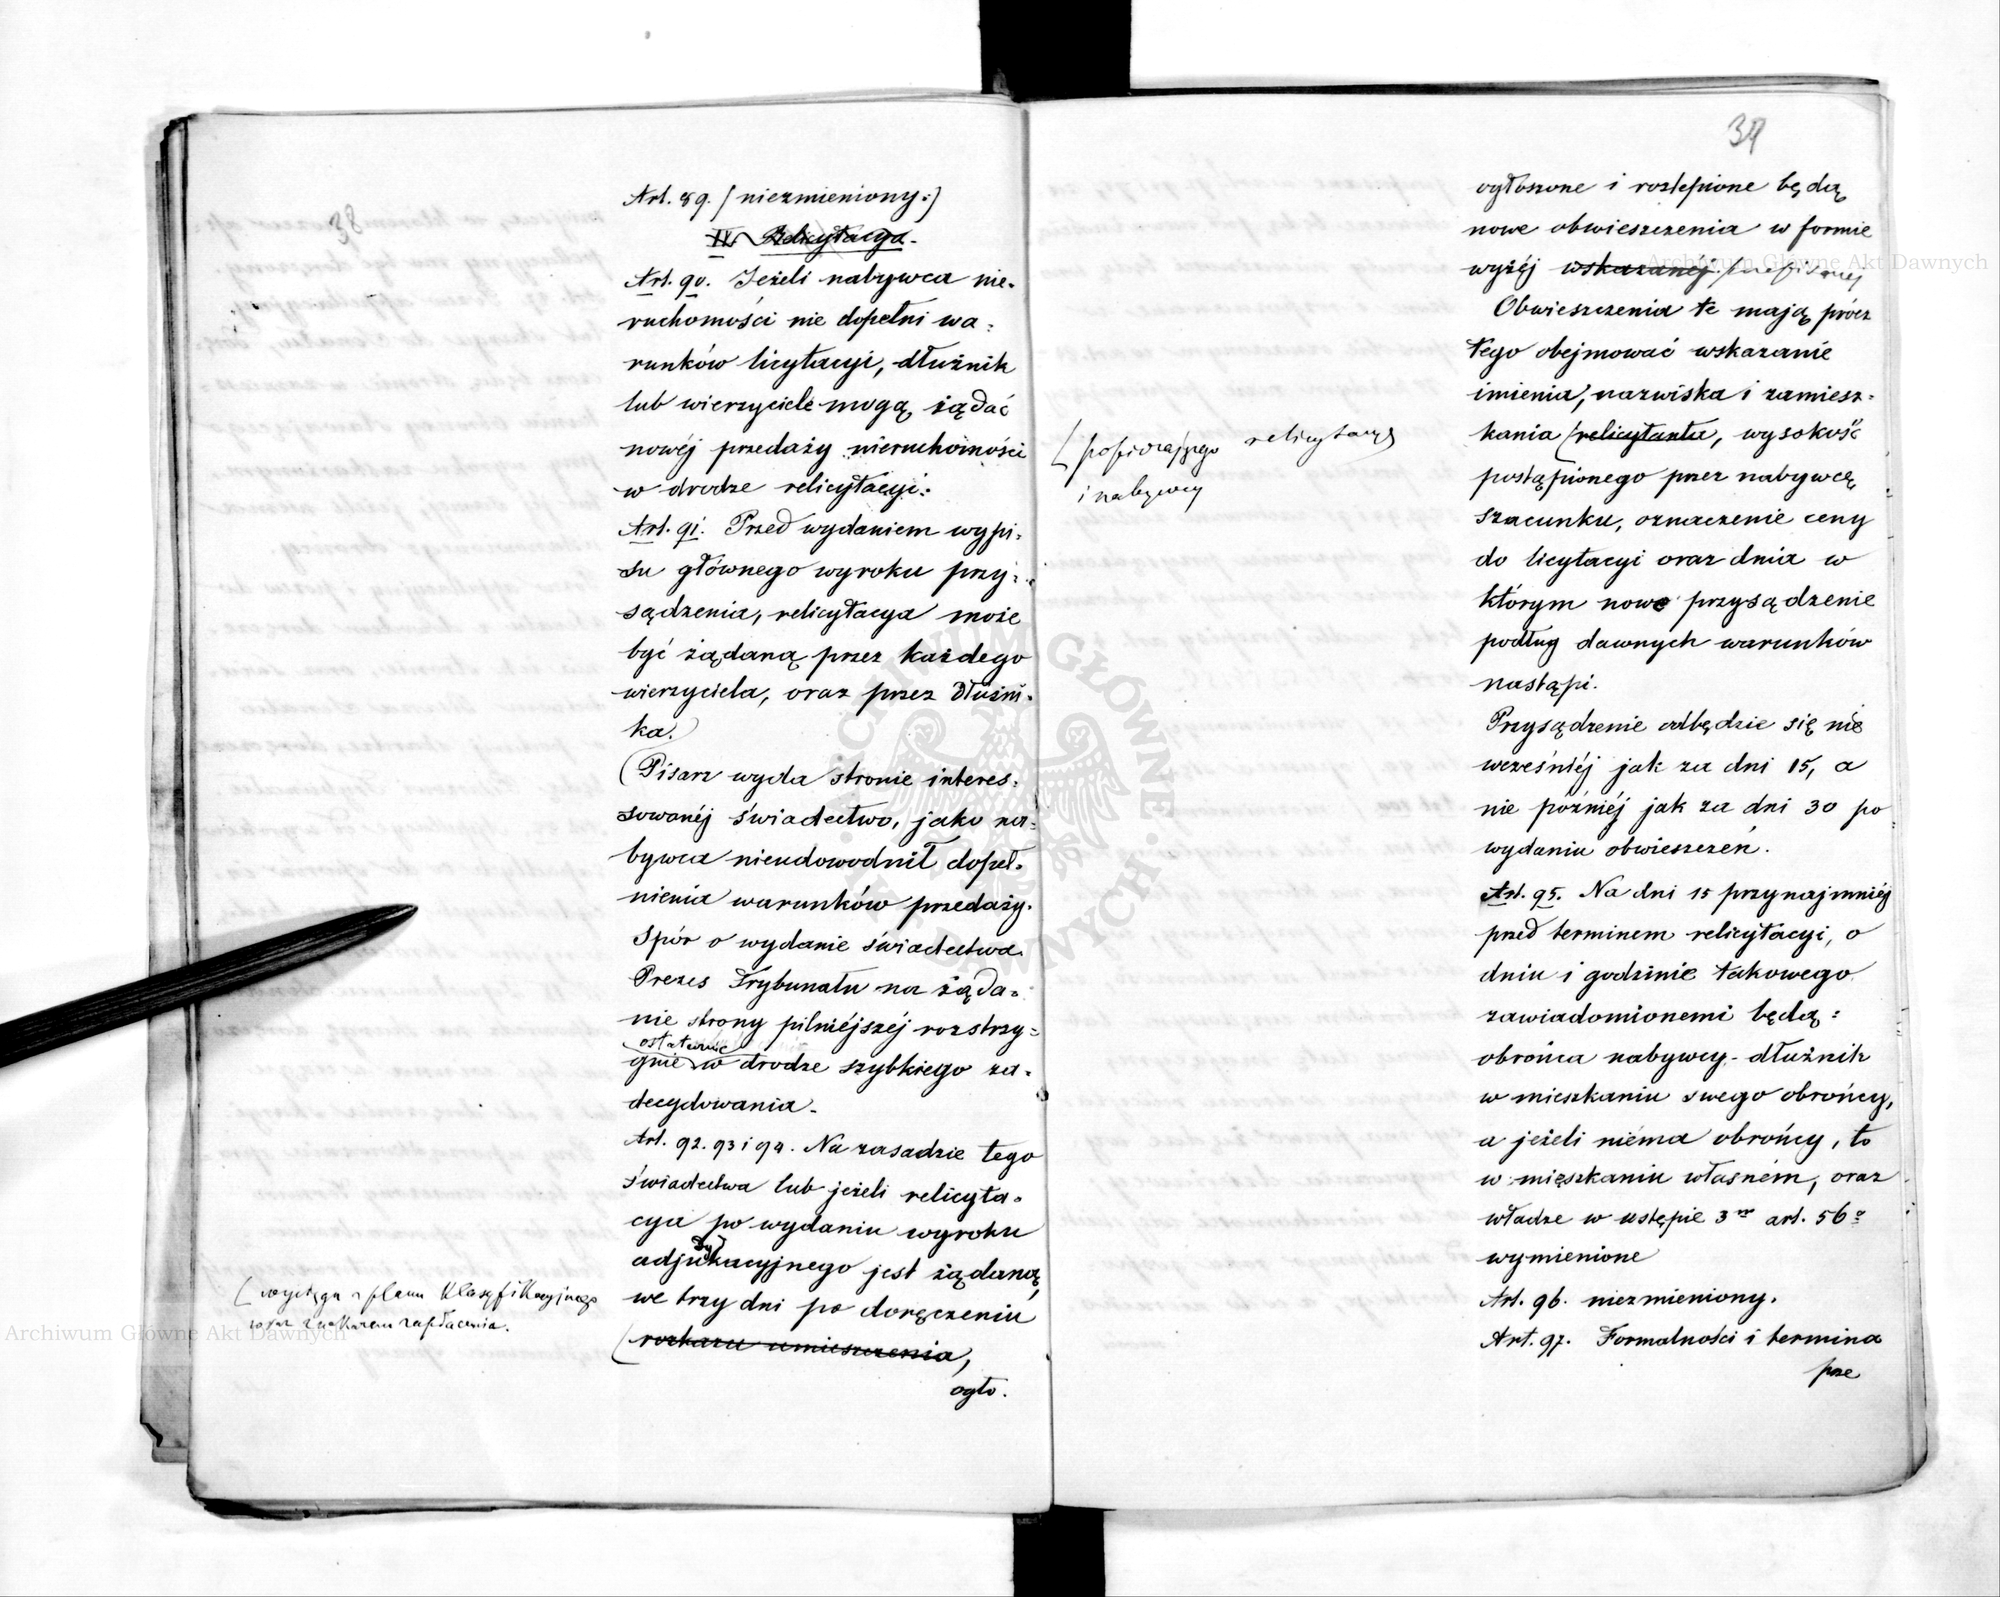 38
Art. 89. /niezmieniony:/
II. Relicytacya.
Art. 90. Jeżeli nabywca nie-
ruchomości nie dopełni wa-
runków licytacyi, dłużnik
lub wierzyciele mogą żądać
nowéj przedaży nieruchomości
w drodze relicytacyi.
Art. 91. Przed wydaniem wypi-
su głównego wyroku przy-
sądzenia, relicytacya może
być żądaną przez każdego
wierzyciela, oraz przez dłużni-
ka.
(Pisarz wyda stronie interes-
sowanéj świadectwo, jako na-
bywca nieudowodnił dopeł-
nienia warunków przedaży.
Spór o wydanie świadectwa
Prezes Trybunału na żąda-
nie strony pilniéjszéj rozstrzy-
ostatecznie
gnie w drodze szybkiego za-
decydowania.
Art. 92. 93 i 94. Na zasadzie tego
świadectwa lub jeżeli relicyta-
cya po wydaniu wyroku
adjudykacyjnego jest żądaną,
we trzy dni po doręczeniu
(rozkazu umieszczenia,
[wyciągu z planu klasyfikacyjnego
zapłacenia.
ogło.
39
ogłoszone i rozlepione będą
nowe obwieszczenia w formie
wyżéj wskazanéj. przepisanej
Obwieszczenia te mają prócz
tego obejmować wskazanie
imienia, nazwiska i zamiesz-
kania (relicytanta, wysokość
[popierającego relicytacyą
i nabywcy
postąpionego przez nabywcę
szacunku, oznaczenie ceny
do licytacyi oraz dnia w
którym nowe przysądzenie
podług dawnych warunków
nastąpi.
Przysądzenie odbędzie się nie
wcześniéj jak za dni 15, a
nie późniéj jak za dni 30 po
wydaniu obwieszczeń.
Art. 95. Na dni 15 przynajmniéj
przed terminem relicytacyi, o
dniu i godzinie takowego
zawiadomionemi będą:
obrońca nabywcy - dłużnik
w mieszkaniu swego obrońcy,
a jeżeli niéma obrońcy, to
w mieszkaniu własném, oraz
władze w ustępie 3m art. 56o
wymienione
Art. 96. niezmieniony.
Art. 97. Formalności i termina
prze
Archiwum Główne Akt Dawnych
Archiwum Główne Akt Dawnych
ARCHIWUM GŁÓWNE AKT DAWNYCH